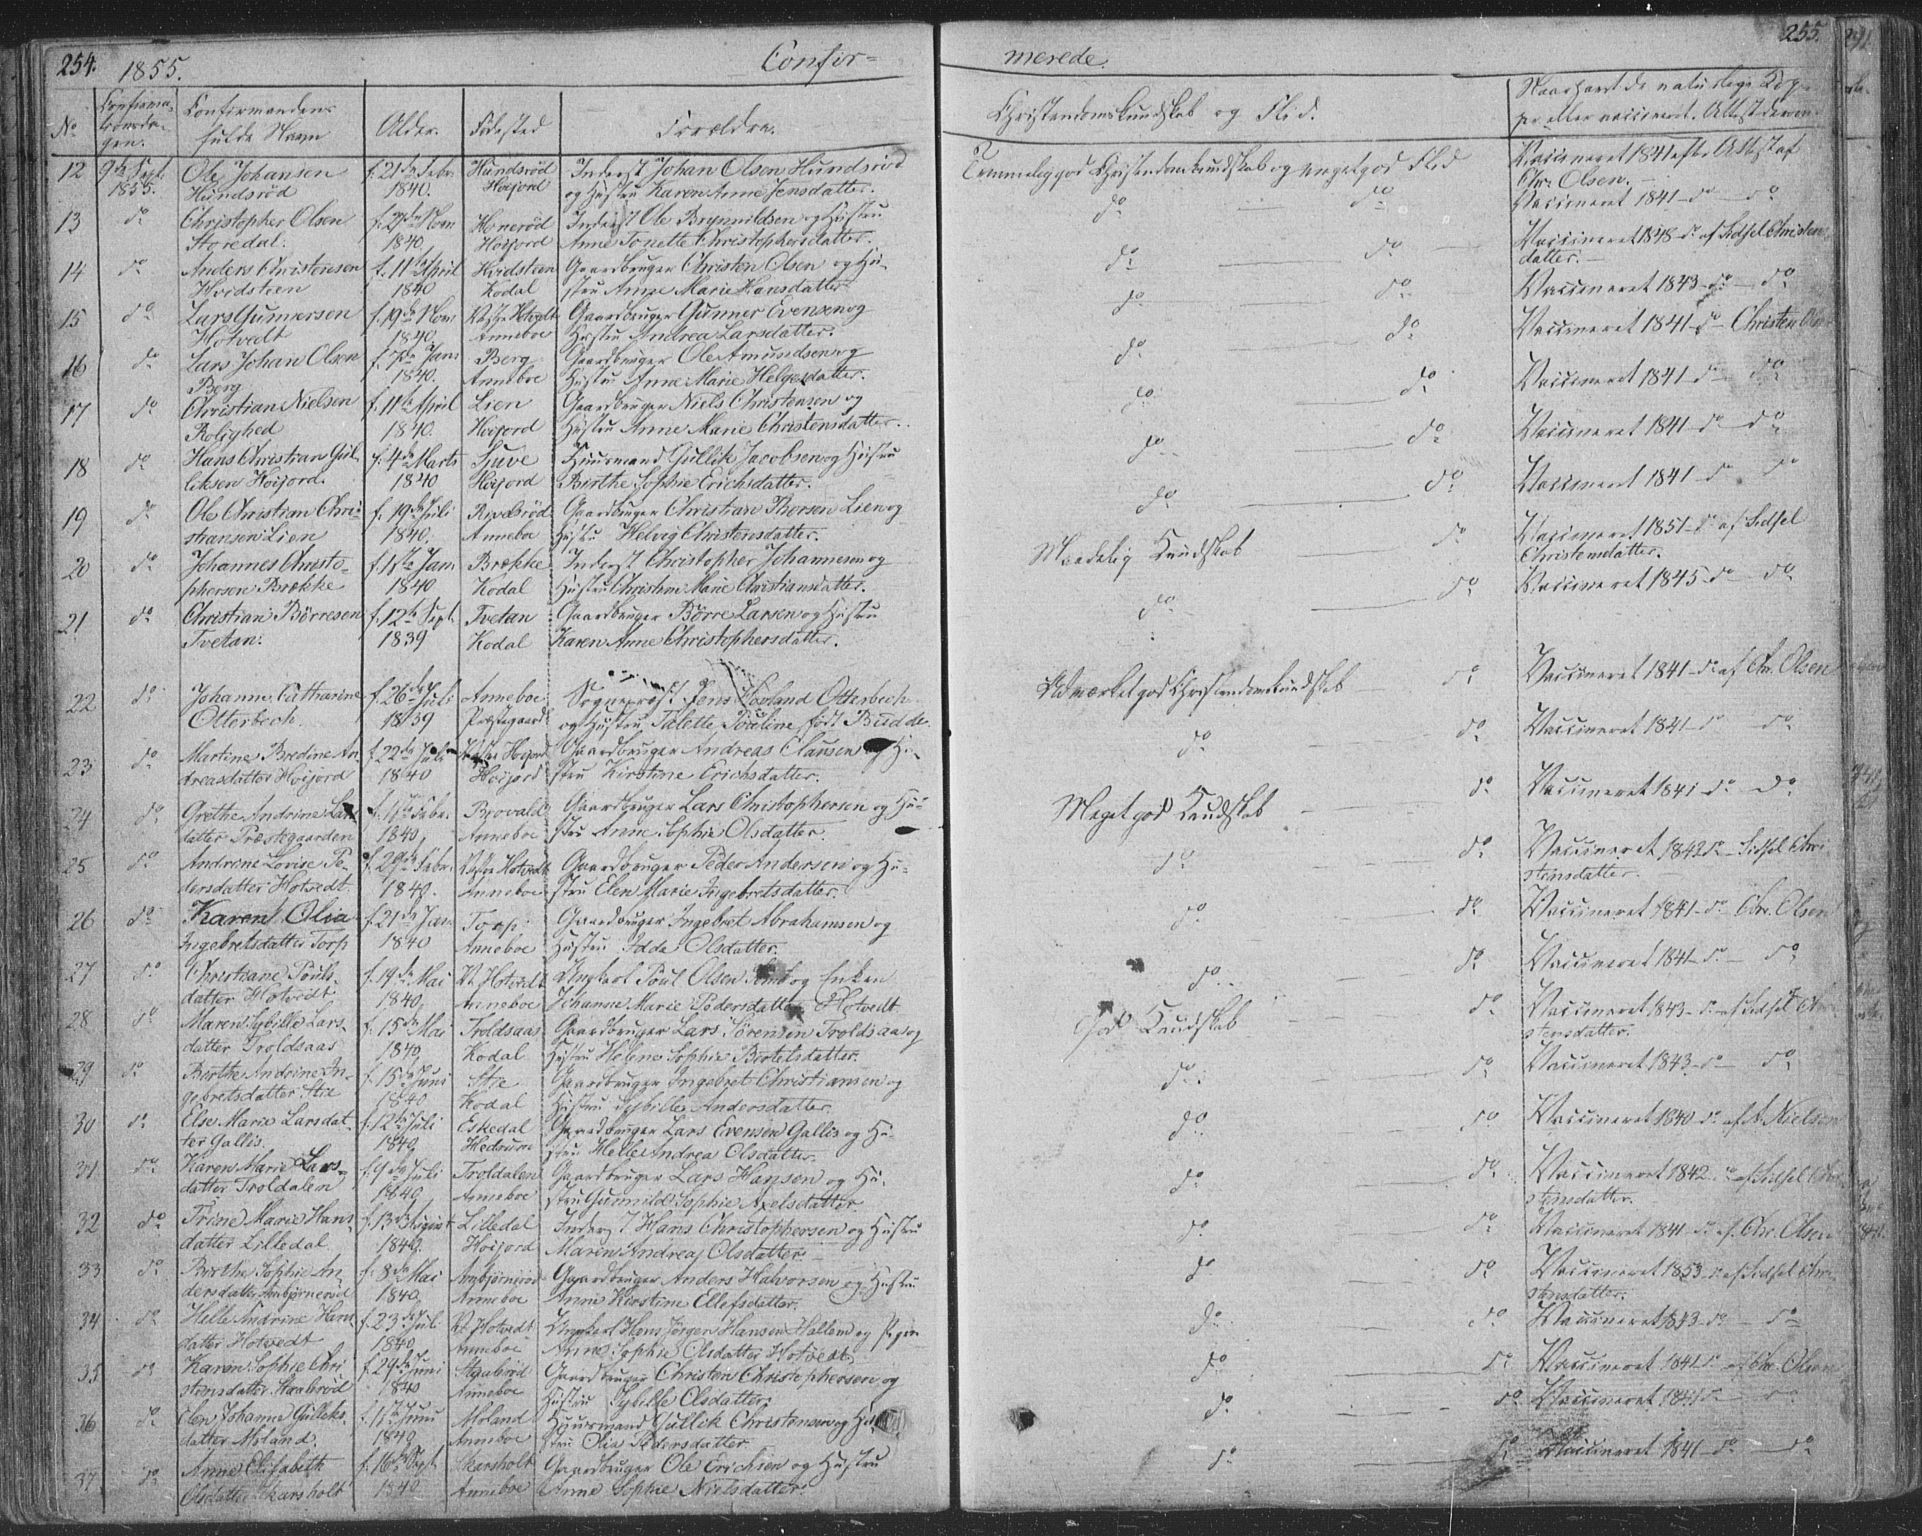 254. 1855. Confir=
No Confirma- tionsda- gen. Confirmandens fulde Navn Alder. Fødested Forældre.
12 9de Sept. Ole Johansen f. 21de Febr. Hundsrød Inderst Johan Olsen Hundsrød
1855. Hundsrød 1840. Høijord og Hustru Karen Anne Jensdatter.
13 do Christopher Olsen f. 27de Novr Inderst Ole Brynnildsen og Hustru
Storedal. 1840. Høijord Anne Tonette Christophersdatter.
14 do Anders Christensen f. 11te April Hvidsteen Gaardbruger Christen Olsen og Hu-
Hvidsteen 1840 Kodal stru Anne Marie Hansdatter
15 do Lars Gunnersen f. 19de Novr Hotvedt Gaardbruger Gunner Evensen og
Hotvedt 1840. Anneboe Hustru Andrea Larsdatter.
16 do Lars Johan Olsen f. 7de Jan. Berg Gaardbruger Ole Amundsen og
Berg 1840. Anneboe Hustru Anne Marie Helgesdatter.
17 do Christian Nielsen f. 11te April Lien Gaardbruger Niels Christensen og
Rolighed 1840. Høijord Hustru Anne Marie Christensdatter.
18 do Hans Christian Gul- f. 4de Marts Stuve Huusmand Gullik Jacobsen og Hustru
liksen Høijord. 1840 Høijord Birthe Sophie Erichsdatter.
19 do Ole Christian Chri- f. 19de Juli Gaardbruger Christian Thorsen Lien og
stiansen Lien 1840. Anneboe Hustru Helvig Christensdatter.
20 do Johannes Christo- f. 1ste Jan. Brekke Inderst Christopher Johannesen og
phersen Brække 1840 Kodal Hustru Marie Christiansdatter.
21 do Christian Börresen f. 12te Sept. Tvetan Gaardbruger Börre Larsen og Hustru
Tvetan. 1839 Kodal Karen Anne Christophersdatter.
22 do Johanne Catharine f. 26de Juli Anneboe Sognepræst Jens Hovland Otterbech
Otterbech. 1839 Præstegaard og Hustru Talette Pouline, født Budde
23 do Martine Bredine An- f. 22de Juli Høijord Gaardbruger Andreas Clausen og Hu-
dreasdatter Høijord 1840 Høijord stru Kirstine Erichsdatter.
24 do Grethe Andrine Lars Febr. Brovald Gaardbruger Lars Christophersen og Hu-
datter Præstegaarden 1840, Anneboe stru Anne Sophie Olsdatter.
25 do Andrine Lovise Pe- f. 29de Febr. Hotvedt Gaardbruger Peder Andersen og Hu-
dersdatter Hotvedt. 1840. Anneboe stru Elen Marie Ingebretsdatter
26 do Karen Olia f. 21de Jan. Torp Gaardbruger Ingebret Abrahamsen og
Ingebretsdatter Torp 1840 Anneboe Hustru Idda Olsdatter
27 do Christiane Pouls- f. 19de Mai V. Hotvedt Ungkarl Poul Olsen og Enken
datter Hotvedt, 1840, Anneboe Johanne Marie Pedersdatter Hotvedt
28 do Maren Sybille Lars- f. 15de Mai Troldsaas Gaardbruger Lars Sørensen Troldsaas og
datter Troldsaas 1840, Kodal Hustru Helene Sophie Bertelsdatter.
29 do Birthe Andrine In- f. 15de Juni Gaardbruger Ingebret Christiansen og
gebretsdatter 1840 Kodal Hustru Sybille Andersdatter.
30 do Else Marie Larsdat- f. 12te Juli Eskedal Gaardbruger Lars Evensen Gallis og Hu-
ter Gallis. 1840 Hedrum stru Helle Andrea Olsdatter.
31 do Karen Marie Lars- f. 9de Juli Troldalen Gaardbruger Lars Hansen og Hu-
datter Troldalen 1840 Anneboe stru Gunnild Sophie Axelsdatter
32 do Trine Marie Hans- f. 13de August Lilledal Inderst Hans Christophersen og Hustru
datter Lilledal 1840. Høijord Maren Andrea Olsdatter.
33 do Birthe Sophie An- f. 8de Mai Gaardbruger Anders Halvorsen og Hustru
dersdatter 1840, Anneboe Anne Kirstine Ellefsdatter.
34 do Helle Andrine Hans f. 23de Juli V. Hotvedt Ungkarl Hans Jörgen Hansen Hallem og Pigen
datter Hotvedt 1840 Anneboe Anne Sophie Olsdatter Hotvedt
35 do Karen Sophie Chri f. 29de Juni Gaardbruger Christen Christophersen og
stensdatter 1840 Anneboe Hustru Sybille Olsdatter
36 do Elen Johanne Gulliks- Juni Moland Huusmand Gullik Christensen og Hu
datter Moland. 1840 Anneboe stru Olia Pedersdatter
37 do Anne Elisabeth f. 16de Sept. Skarsholt Gaardbruger Ole Erichsen og Hustru
Olsdatter Skarsholt 1840 Anneboe Anne Sophie Nielsdatter.
merede. 255.
Christendomskundskab og Flid. Naar havt de naturlige Kop- per eller vaccineret. Attest derom
Temmelig god Christendomskundskab og meget god Flid Vaccineret 1841 efter Attest af
Chr. Olsen.
do do Vaccineret 1841 do do
do do Vaccineret 1848 do af Sidsel Christens
datter.
do do Vaccineret 1843 do do
do do Vaccineret 1841 do Christen Olsen
do do Vaccineret 1841 do do
do do Vaccineret 1841 do do
do do Vaccineret 1841 do do
Maadelig Kundskab do Vaccineret 1851 do af Sidsel
Christensdatter.
do do Vaccineret 1845 do do
Udmærket god Christendomskundskab do Vaccineret 1841 do af Chr. Olsen
do do Vaccineret 1841 do do
Meget god Kundskab do Vaccineret 1841 do do
do do Vaccineret 1842 do Sidsel Chri-
stensdatter.
do do Vaccineret 1841 do Chr. Olsen
do do Vaccineret 1841 do do
God Kundskab do Vaccineret 1843 do af Sidsel Chri-
stensdatter.
do do Vaccineret 1843 do do
do do Vaccineret 1840 do af A. Nielsen
do do Vaccineret 1842 do af Sidsel Chri-
stensdatter.
do do Vaccineret 1841 do af Chr. Olsen
do do Vaccineret 1853 do af Sidsel Chri-
stensdatter.
do do Vaccineret 1843 do do
do do Vaccineret 1841 do af Chr. Olsen
do do Vaccineret 1841 do do
do do Vaccineret 1841 do do